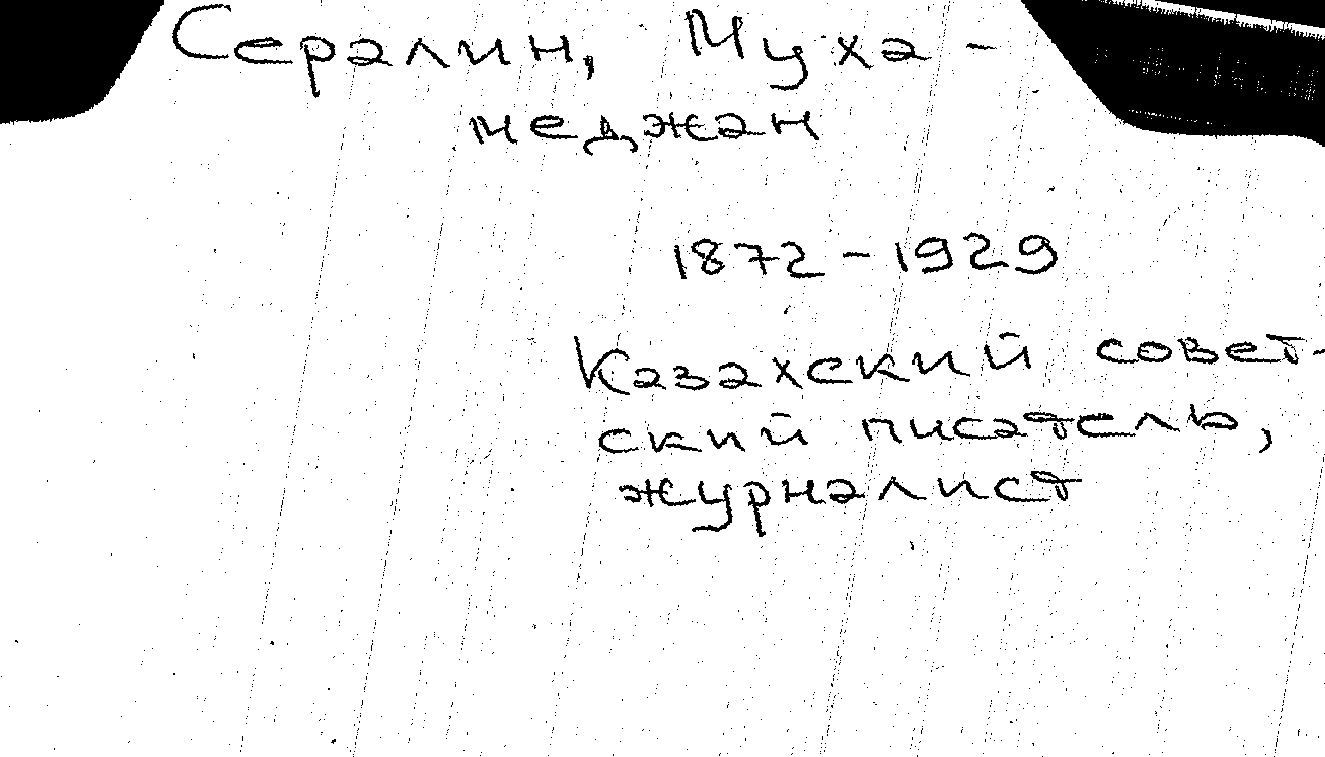 Сералин, Муха-
меджан
1872-1929
Казахский совет-
ский писатель,
журналист